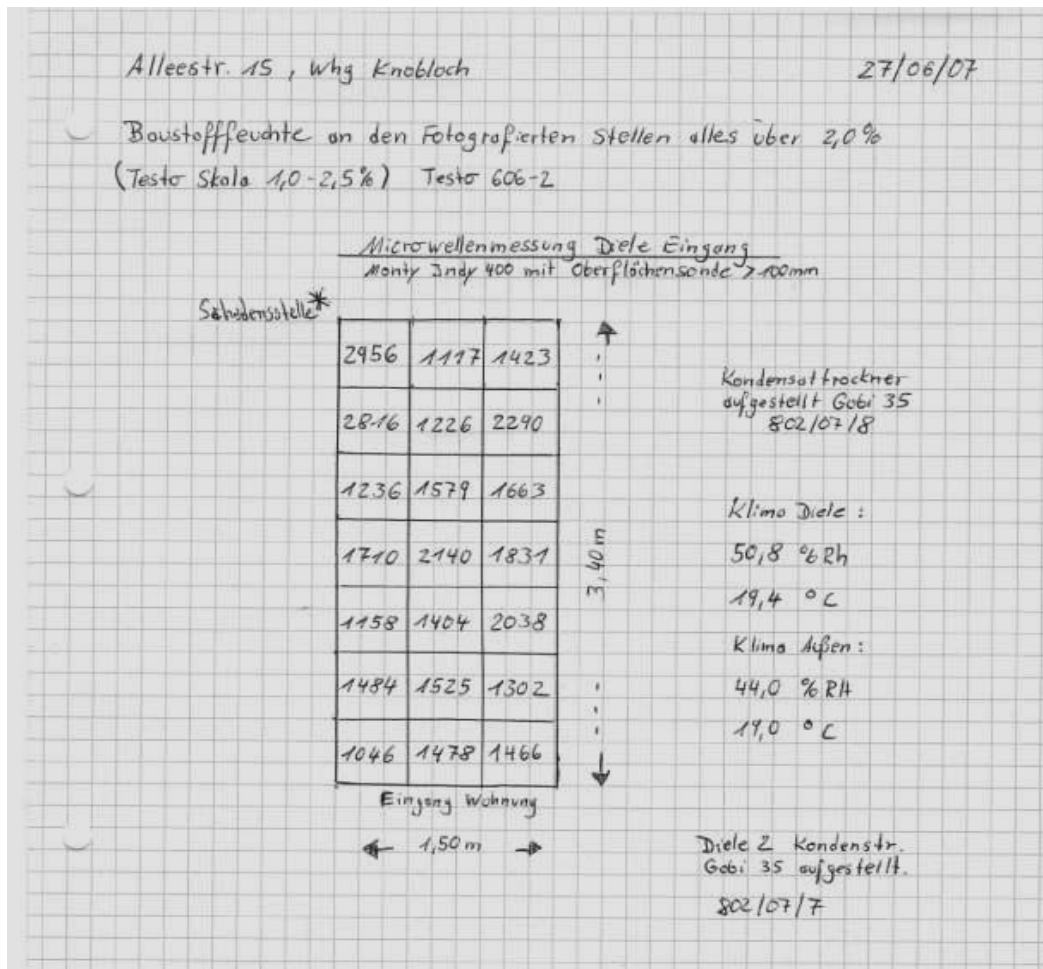 Alleestr. 15, Whg Knobloch 27/06/07
Baustofffeuchte an den Fotografierten Stellen alles über 2,0%
(Testo Skala 1,0-2,5%) Testo 606-2
Microwellenmessung Diele Eingang
Monty Indy 400 mit Oberflächensonde >100mm
Schadensstelle*
2956 1117 1423
2816 1226 2290
1236 1579 1663
1710 2140 1831
1158 1404 2038
1484 1525 1302
1046 1478 1466
3,40 m
Eingang Wohnung
1,50 m
Kondensattrockner
aufgestellt Gobi 35
802/07/8
Klima Diele:
50,8 % Rh
19,4 °C
Klima Außen:
44,0 % RH
19,0 °C
Diele 2 Kondenstr.
Gobi 35 aufgestellt.
802/07/7